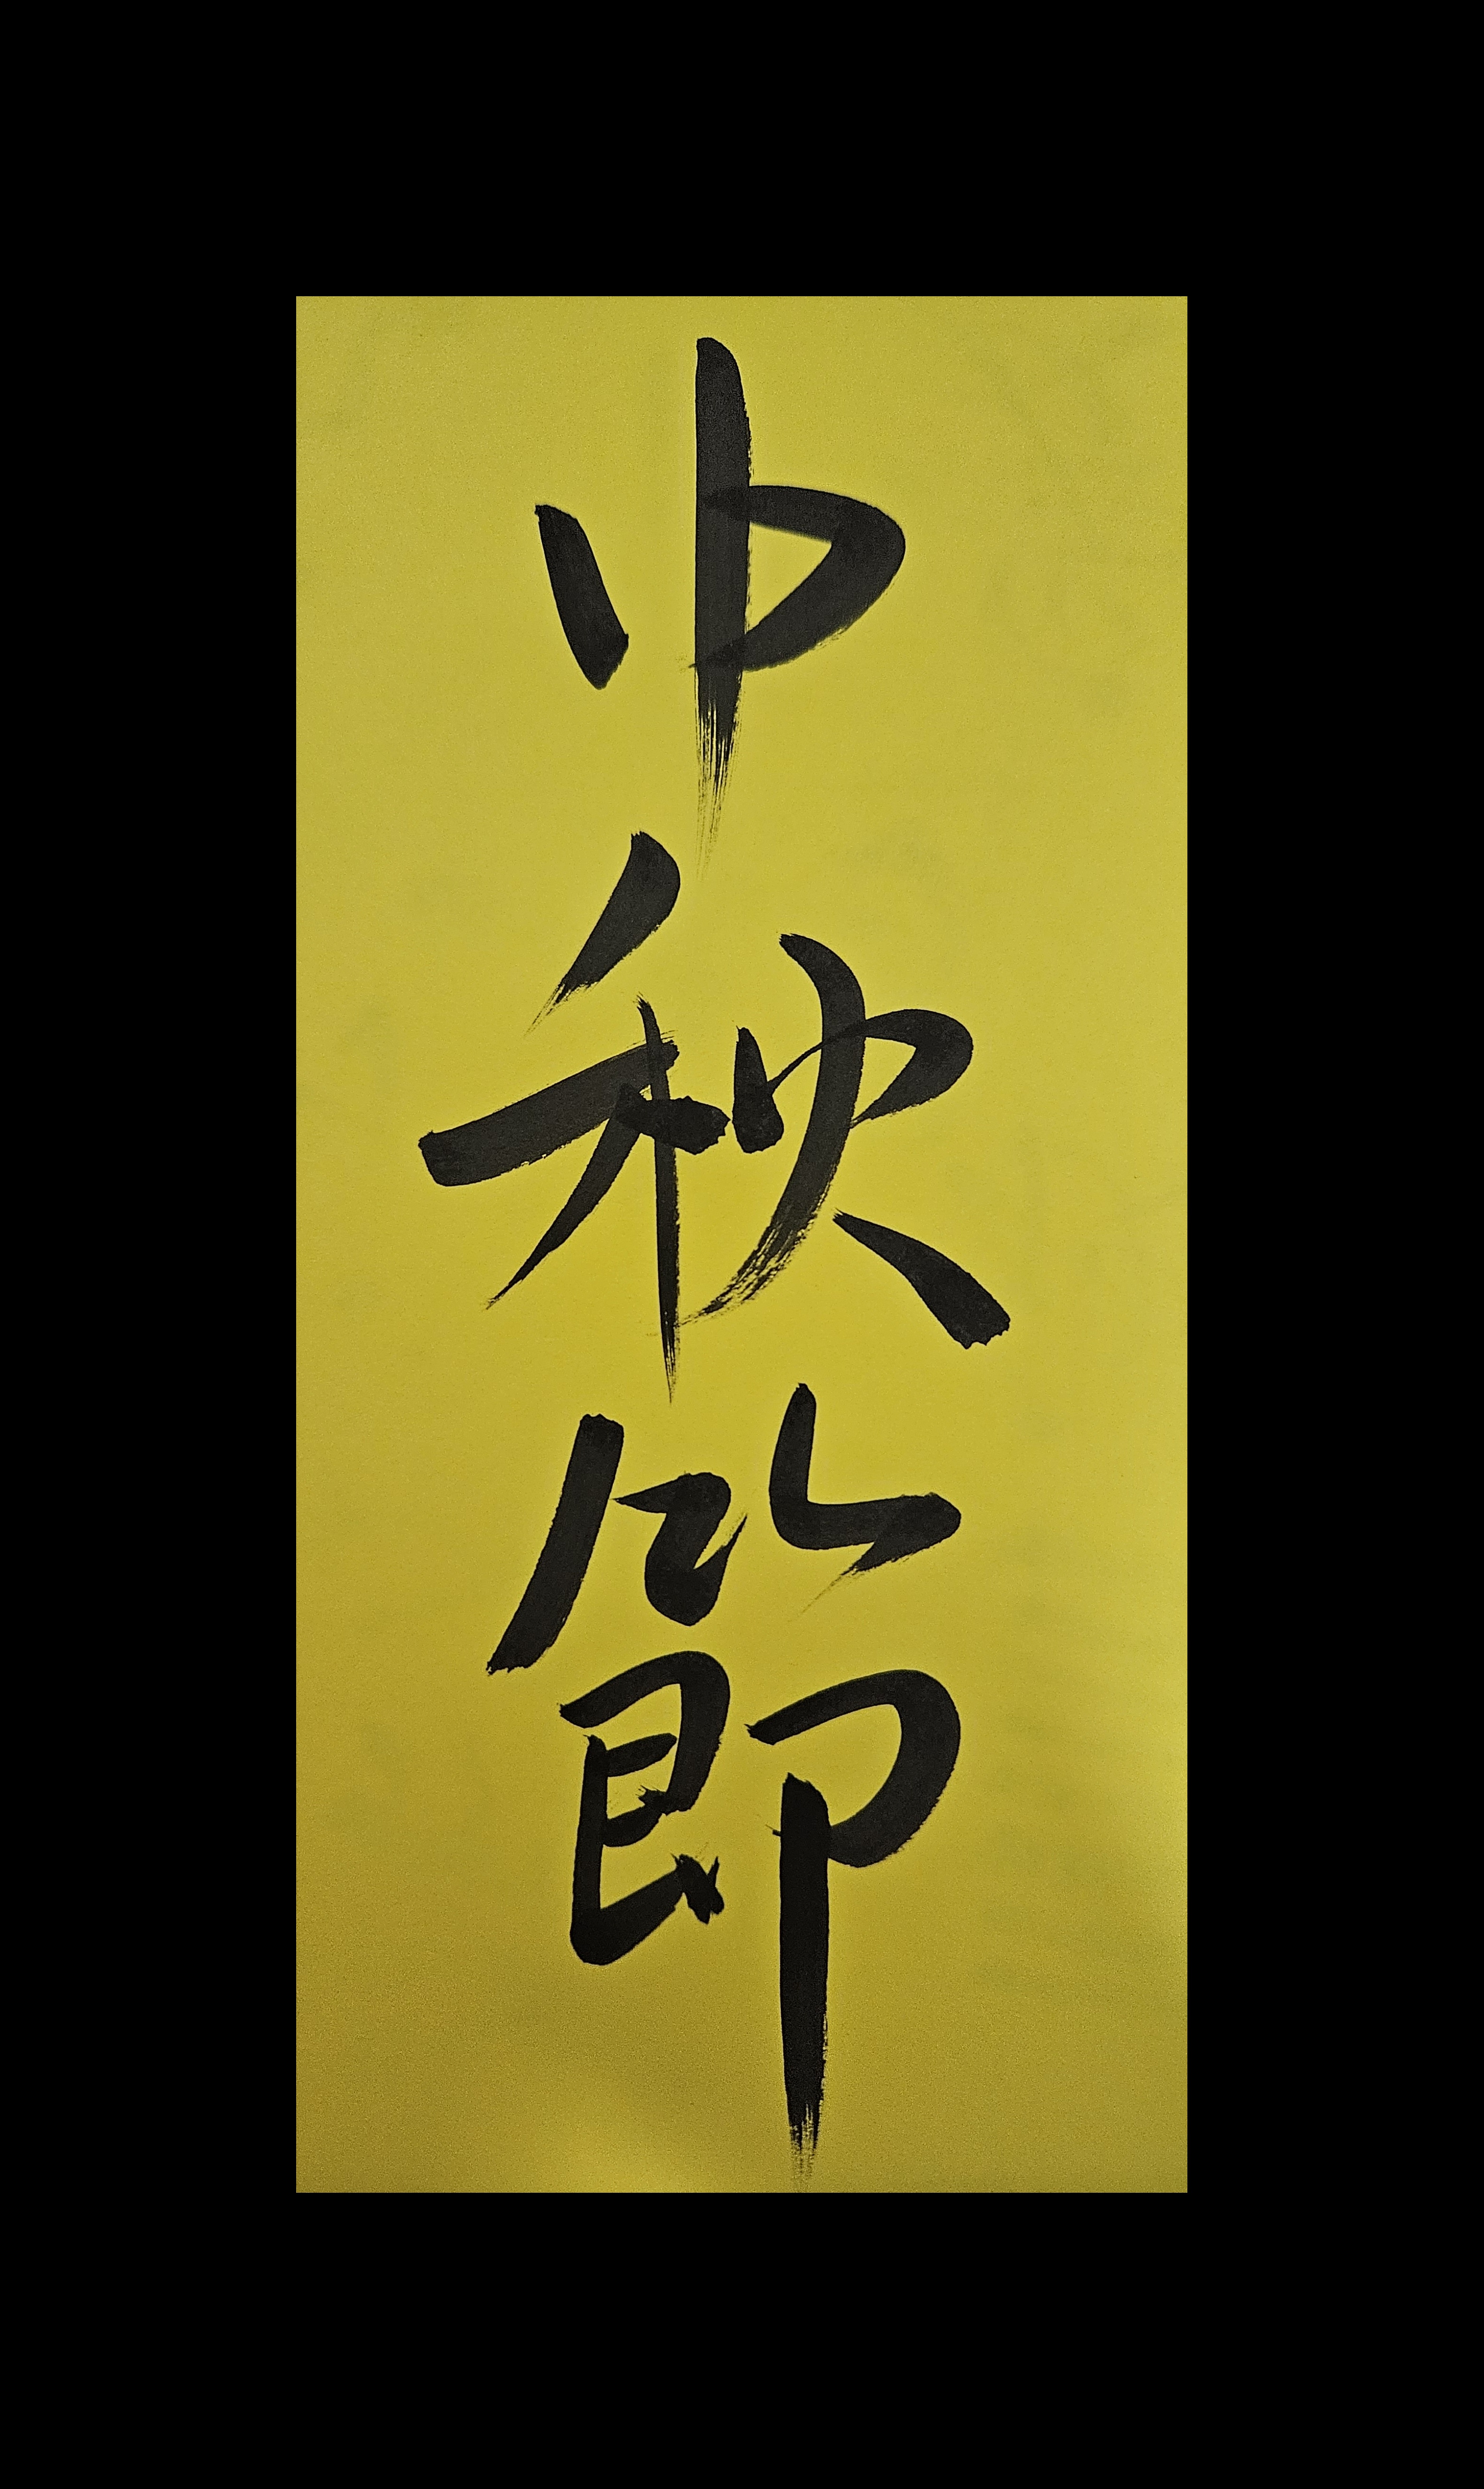 中秋節